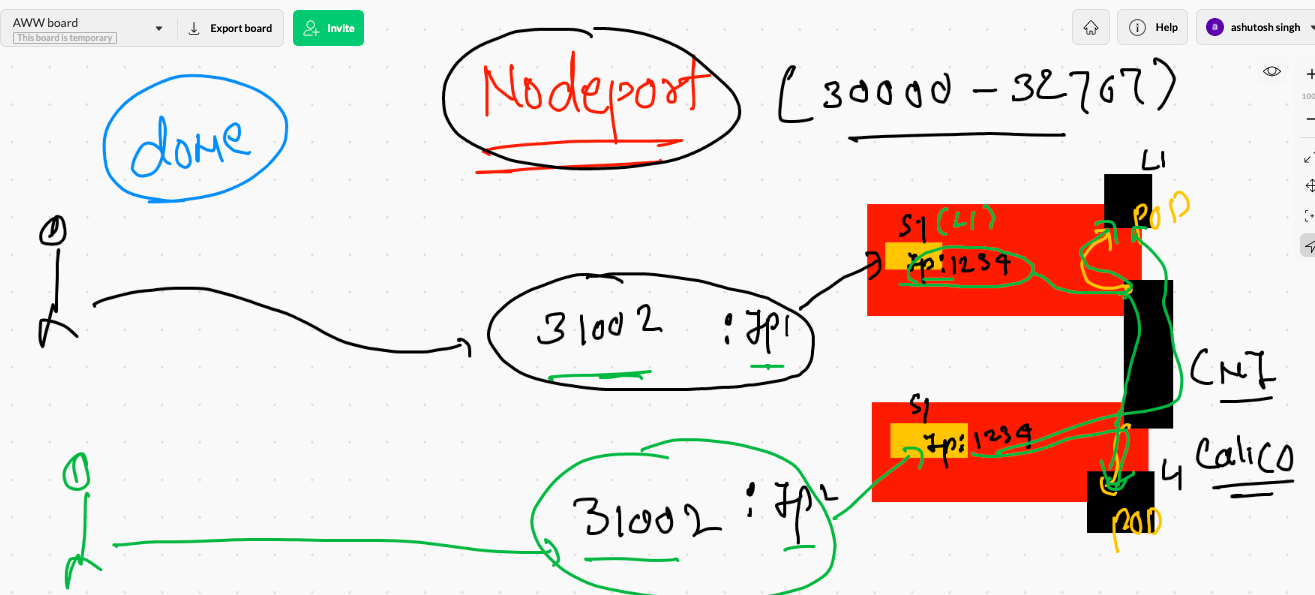 AWW board
This board is temporary
Export board
Invite
Help
a
ashutosh singh
Nodeport
(30000 - 32767)
100
L1
POD
S1 (L1)
Ip:1234
31002 :Ip1
CNI
S1
Ip:1234
Calico
31002 : Ip2
POD